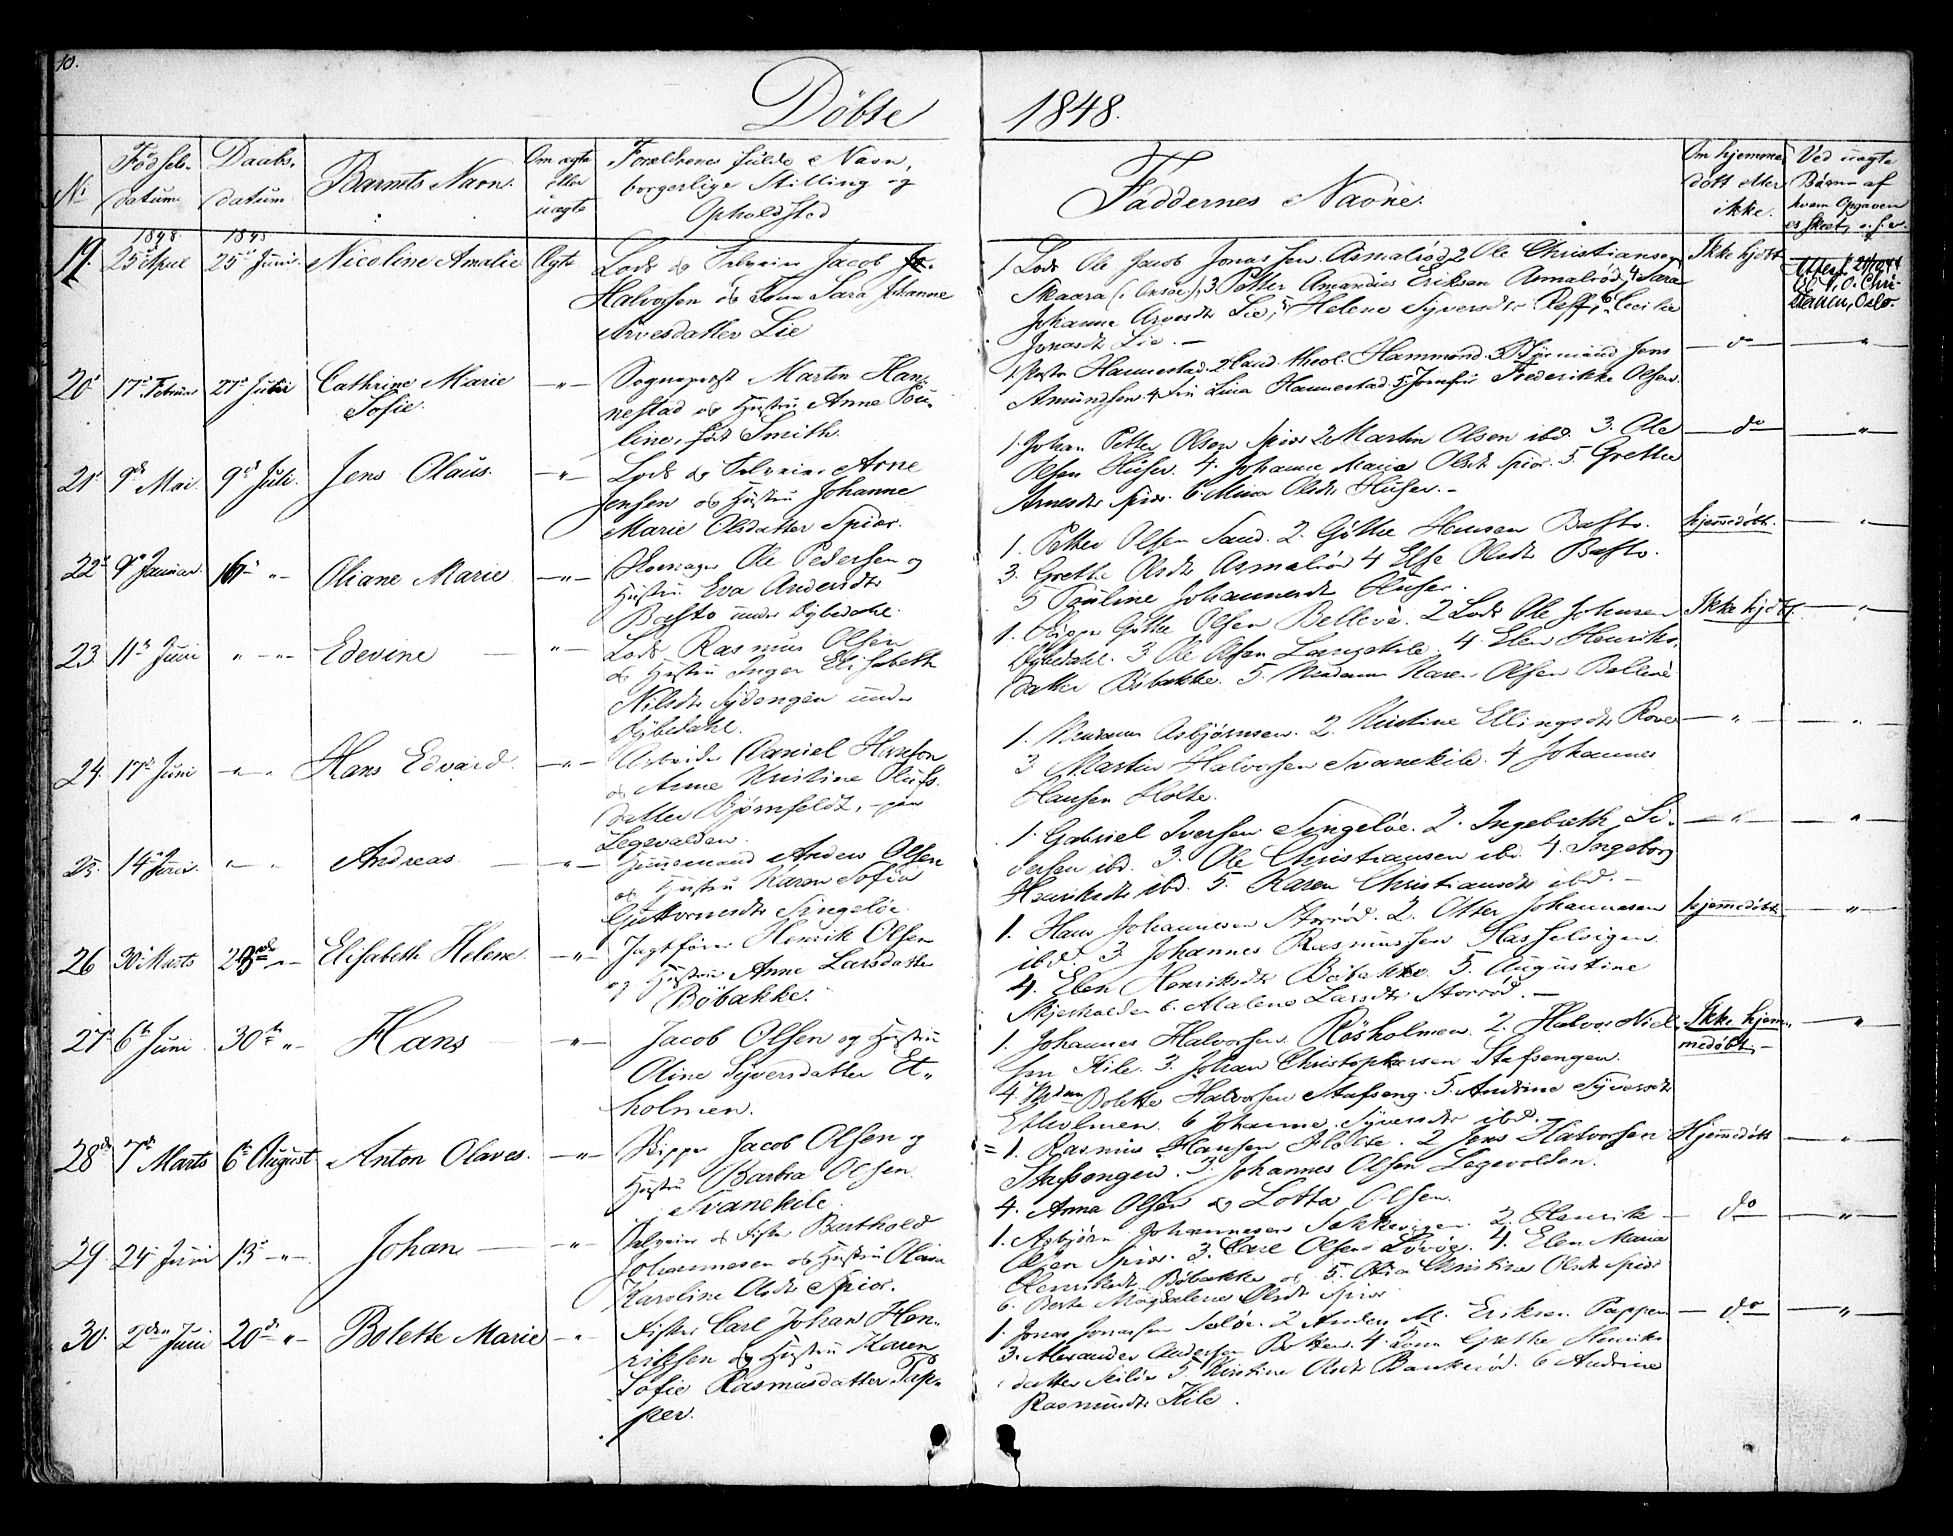 10.
Döbte 1848.
No
Födsels-
datum
Daabs-
datum
Barnets Navn.
Om ægte
eller
uægte
Forældrenes fulde Navn,
borgerlige Stilling og
Opholdsted
Faddernes Navne.
Om hjemme
döbt eller
ikke.
Ved uægte
Börn af
hvem Opgaven
er skeet, o.s.v.
19. 1848 25de April 1848 25de Juni Nicoline Amalie Ægte
Lods og Selveier Jacob
Halvorsen og Kone Sara Johanne
Arvesdatter Lie
1 Lods Ole Jacob Jonassen Asmalröd 2 Ole Christiansen
Skaara (i Onsöe), 3. Petter Amandus Eriksen Asmalröd, 4 Sara
Johanne Arvesdtr Lie, 5 Helene Syversdtr Reff, 6 Cecilie
Jonasdtr Lie. —
Ikke hjdbt
Attest
O. Chri-
stensen, Oslo.
20de 17de Februar 27de Juni Cathrine Marie
Sofie. — " —
Sogneprest Martin Han-
nestad og Hustru Anne Pau-
line, föd Smith.
1. Pastor Hannestad. 2 Cand. theol. Hammond. 3 Styrmand Jens
Amundsen 4. Lina Hannestad 5. Jomfru Frederikke Olsen.
— do — " —
21de 9de Mai 9de Juli. Jens Olaus. — " —
Lods og Selveier Arne
Jensen og Hustru Johanne
Marie Olsdatter Spior.
1. Johan Petter Olsen Spior 2 Martin Olsen ibd. 3. Ole
Olsen Huser. 4. Johanne Maria Olsdtr Spior. 5. Grethe
Arnesdtr Spior. 6. Mina Olsdtr Huser. —
— do — " —
22de 9de Januar 16de " Oliane Marie — " —
Ole Pedersen og
Hustru Eva Andersdtr
Basto under Dybedahl.
1. Petter Olsen Sand. 2. Göthe Hansen Basto.
3. Grethe Olsdtr Asmalröd 4 Else Olsdtr Basto.
5 Pauline Johannesdtr Huser.
hjemmedöbt. — " —
23. 11te Juni " — " — Edevine — " —
Lods Rasmus Olsen
og Hustru Inger Elisabeth
Nilsdtr Sydengen under
Dybedahl.
1. Skipper Göthe Olsen Belleve. 2 Lods Ole Johnsen
Dybedahl. 3 Ole Olsen Langekile. 4. Elen Henriks-
datter Böbakke. 5. Madame Karen Olsen Belleve
Ikke hjdbt — " —
24. 17de Juni — " — Hans Edvard — " —
Arbeider Daniel Hanson
og Anne Kristine Olufs-
datter Björnfeldt,
Legevolden.
1. Madame Asbjörnsen. 2. Kristine Ellingsdtr Rove
3. Martin Halvorsen Svanekile. 4 Johannes
Hansen Holte.
— " — " —
25. 14de Juni. — " — Andreas — " —
Huusmand Anders Olsen
og Hustru Karen Sofia
Guttormsdtr Singelöe.
1. Gabriel Iversen Singelöe. 2. Ingebreth Si-
versen ibd. 3. Ole Christiansen ibd. 4. Ingeborg
Henriksdtr ibd. 5. Karen Christiansdtr ibd. —
— " — " —
26 30te Marts 23de " Elisabeth Helene — " —
Jagtförer Henrik Olsen
og Hustru Anne Larsdatter
Böbakke.
1. Hans Johannesen Storröd. 2. Otter Johannesen
ibd. 3. Johannes Rasmussen Hasselvigen.
4. Elen Henriksdtr Böbakke. 5. Augustine
Skjerhalden 6. Malene Larsdtr Storröd. —
hjemmedöbt — " —
27de 6te Juni 30te " Hans — " —
Jacob Olsen og Hustru
Oline Syversdatter Et-
holmen.
1. Johannes Halvorsen Rösholmen. 2. Halvor Niel-
sen Kile. 3. Johan Christophersen Stafsengen.
4. Mdm Bolette Halvorsen Stafseng. 5. Andrine Syversdtr
Etholmen. 6 Johanne Syversdtr ibd.
Ikke hjem-
medöbt. — " —
28de 7de Marts 6te August Anton Olaves. — " —
Skipper Jacob Olsen og
Hustru Barbra Olsen
Svanekile.
1. Rasmus Hansen Holte. 2 Jens Halvorsen
Stafsengen. 3. Johannes Olsen Legevolden.
4. Anna Olsen og Lotta Olsen.
Hjemmedöbt — " —
29 24de Juni 13de " Johan — " —
Selveier og Fisker Berthold
Johannesen og Hustru Olava
Karoline Olsdtr Spior.
1. Asbjörn Johannesen Sækkevigen. 2. Henrik
Olsen Spior. 3. Carl Olsen Lövöe. 4. Elen Maria
Henriksdtr Böbakke og 5. Christine Olsdtr Spior
6. Berte Magdalene Olsdtr Spior
— do — " —
30. 2den Juni 20de " Bolette Marie — " —
Fisker Carl Johan Hen-
riksen og Hustru Karen
Sofie Rasmusdatter Pap-
per.
1. Jonas Jonassen Seilöe. 2 Anders M. Eriksen Papper
3. Alexander Andersen Botten. 4. Grethe Henriks-
datter Seilöe 5 Kirstine Olsdtr Bankeröd. 6 Andrine
Rasmusdtr Kile.
— do — " —